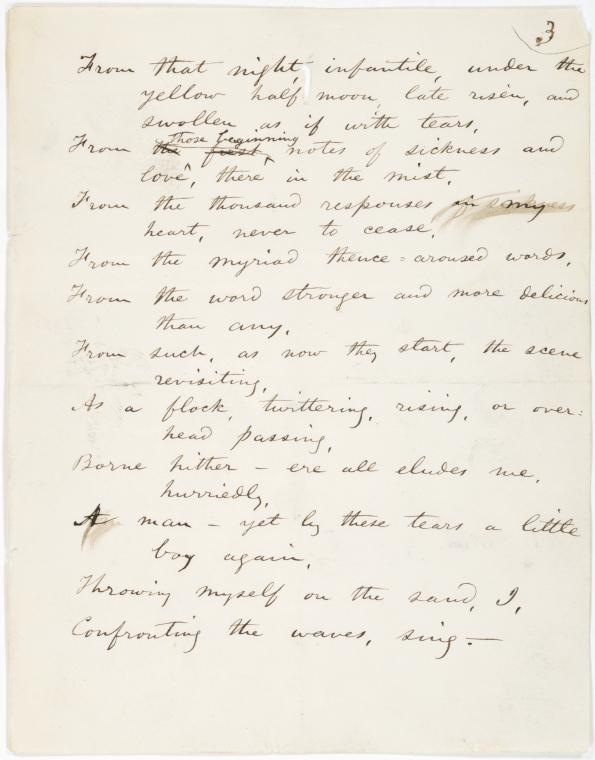 3
From that night, infantile, under the
yellow half moon, late risen, and
swollen as if with tears,
those beginning
From the first, notes of sickness and
love, there in the mist,
From the thousand responses in my
heart, never to cease,
From the myriad thence=aroused words,
From the word stronger and more delicious
than any,
From such, as now they start, the scene
revisiting,
As a flock, twittering, rising, or over=
head passing,
Borne hither – ere all eludes me,
hurriedly,
A man – yet by these tears a little
boy again,
Throwing myself on the sand, I,
Confronting the waves, sing.—